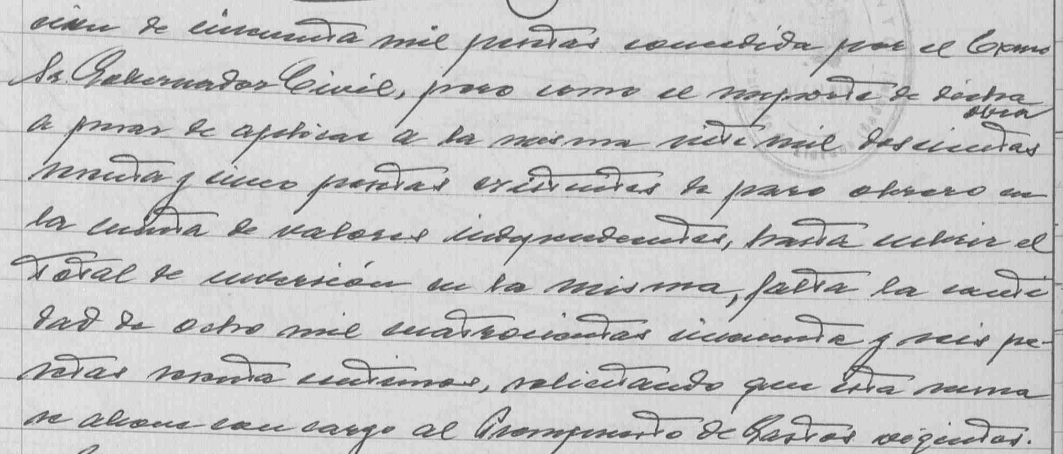 ción de cincuenta mil pesetas concedida por el Excmo
Sr. Gobernador Civil, pero como el importe de dicha
obra
a pesar de aplicar a la misma siete mil doscientas
sesenta y cinco pesetas existentes de paro obrero en
la cuenta de valores independientes, hasta cubrir el
total de inversión en la misma, falta la canti
dad de ocho mil cuatrocientas cincuenta y seis pe-
setas sesenta centimos, solicitando que esta suma
se abone con cargo al Presupuesto de Gastos vigentes.